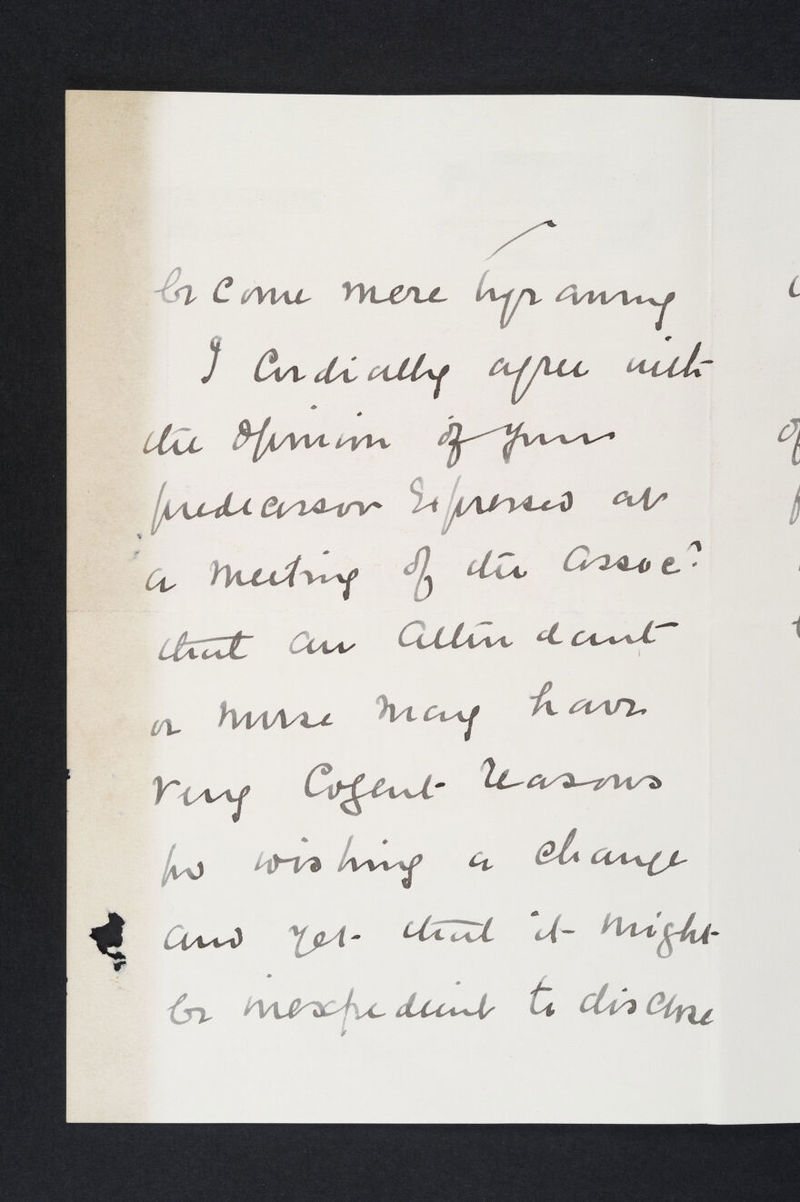 become mere tyranny
I Cordially agree with
the Opinion of your
predecessor Expressed at
a meeting of the Assocn
that an Attendant
or Nurse may have
very Cogent reasons
for wishing a change
and yet that it might
be inexpedient to disclose